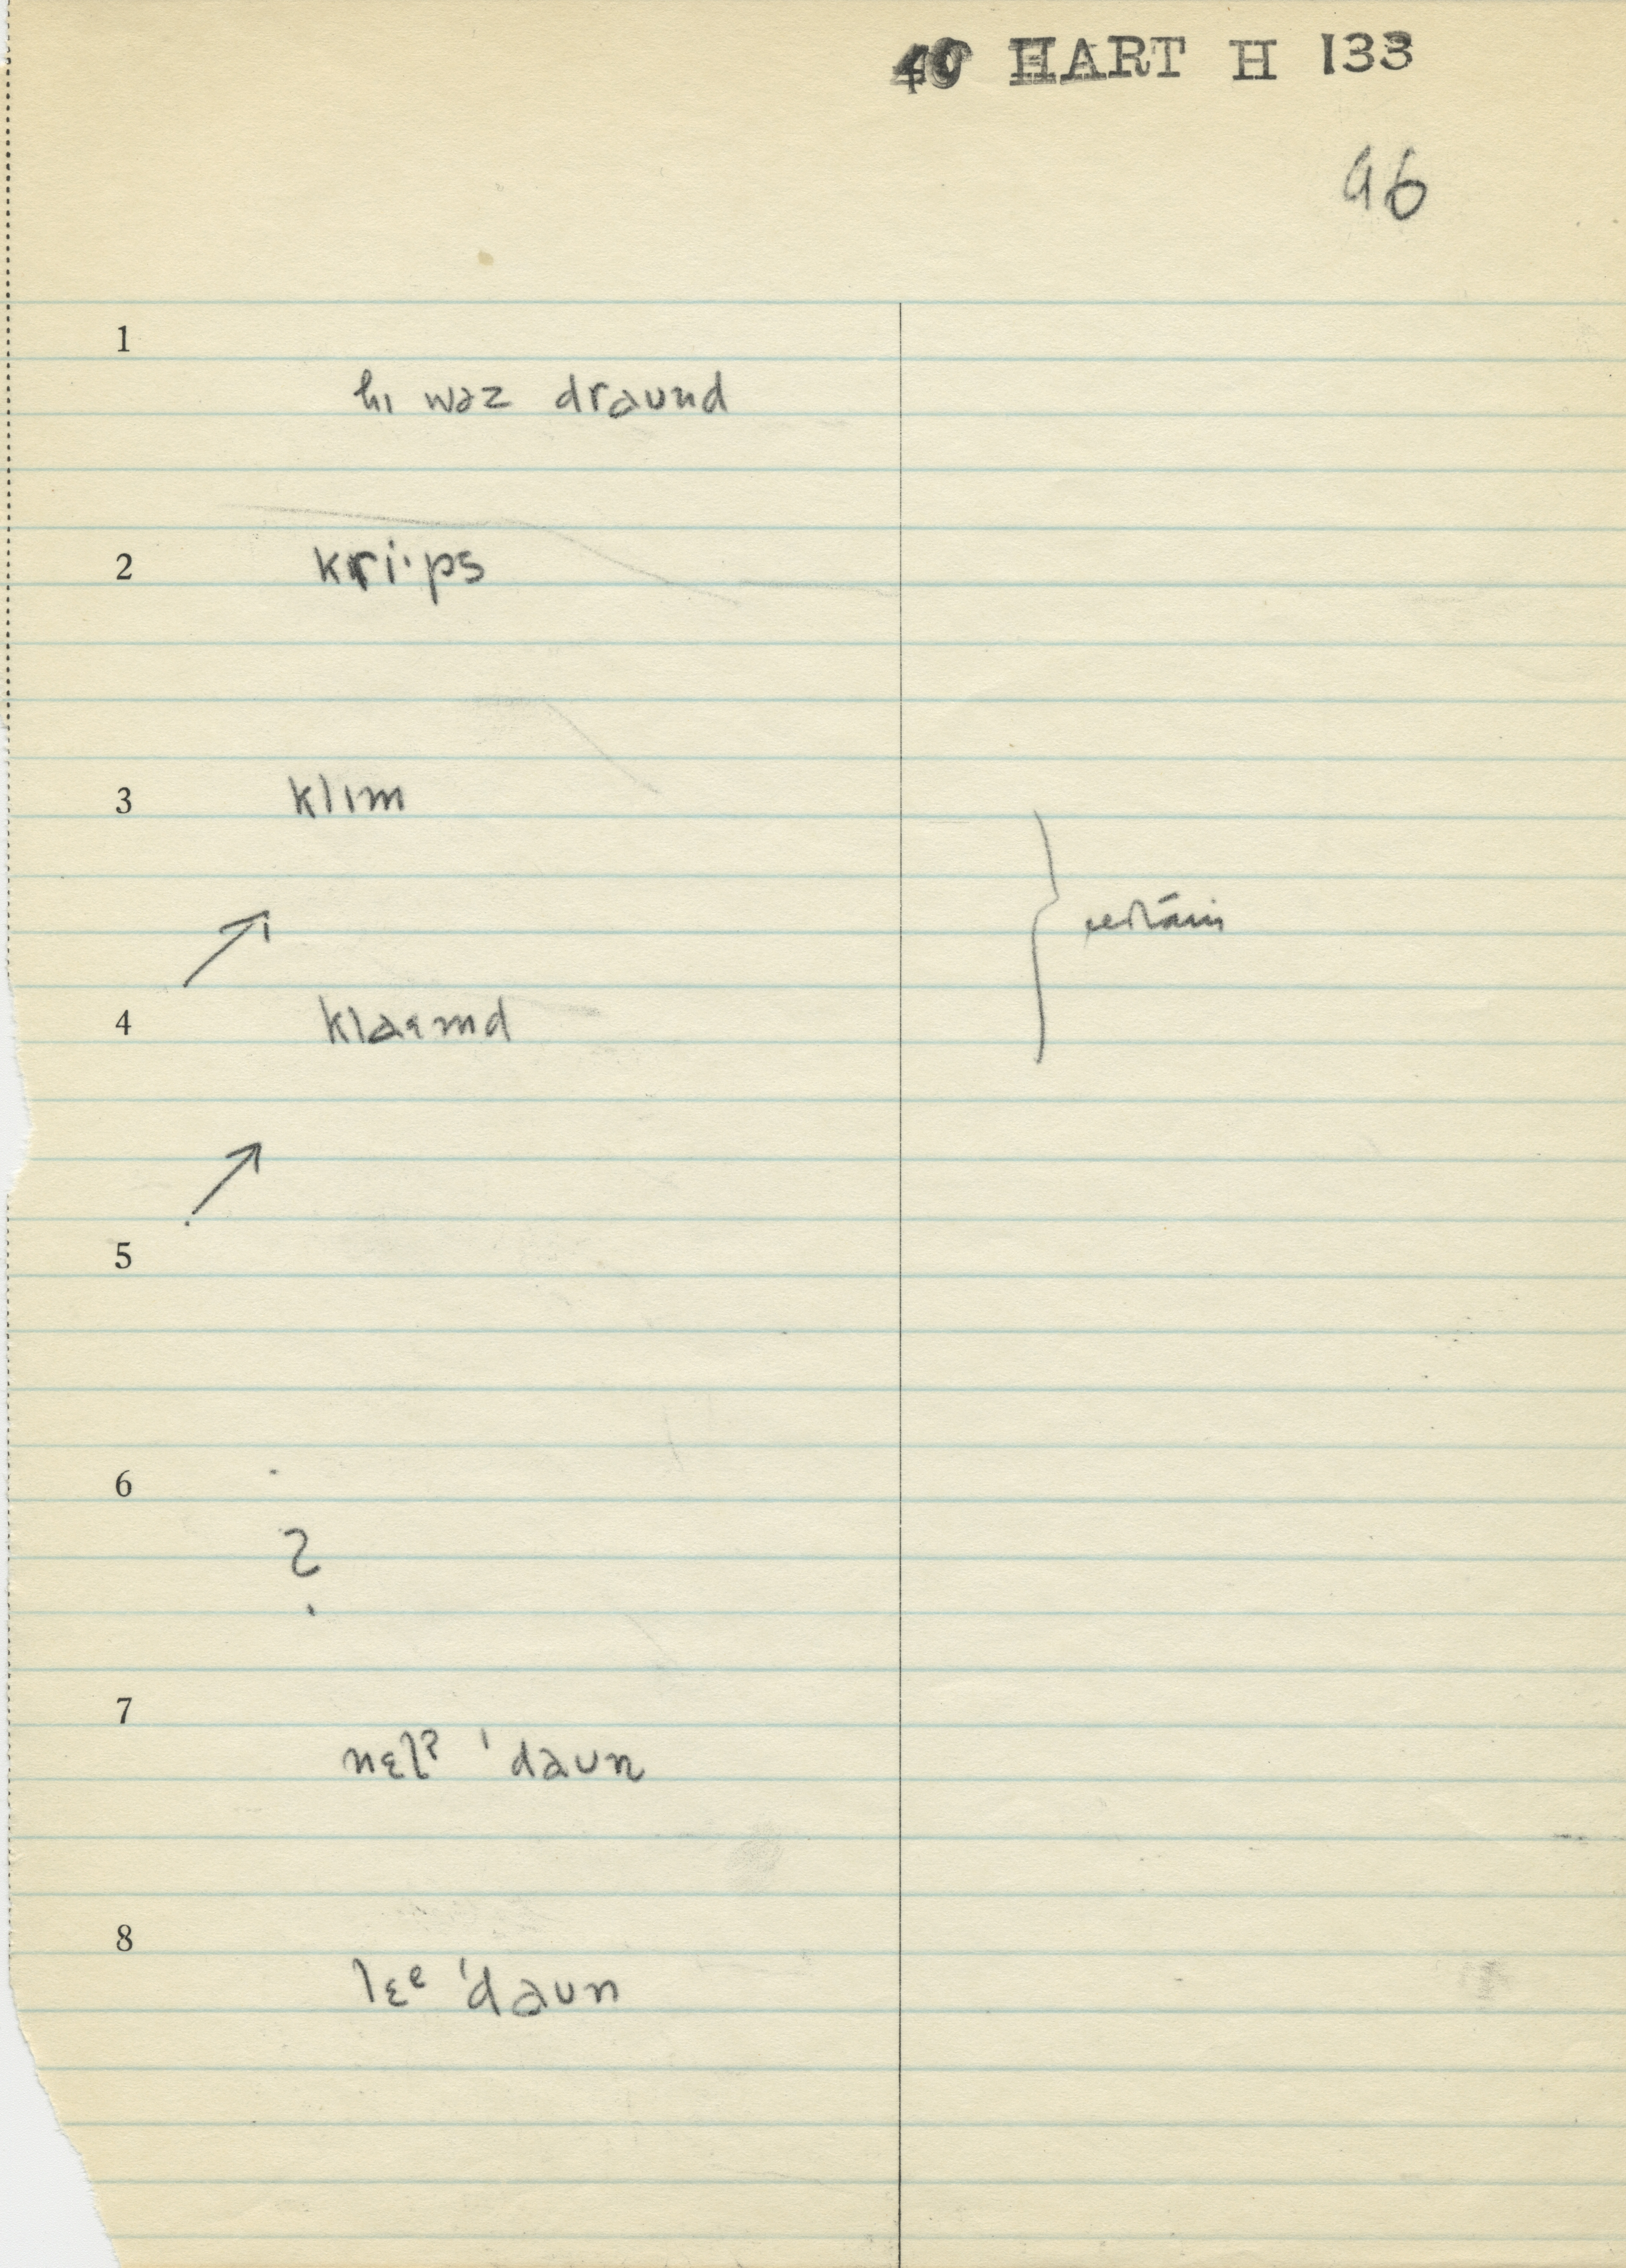 40 HART H 133
96
1
hɪ wəz draʊnd
2
kri·ps
3
klɪm
4
klaɪmd
5
6
?
7
nɛlˀ ˈdaʊn
8
lɛᵉ ˈdaʊn